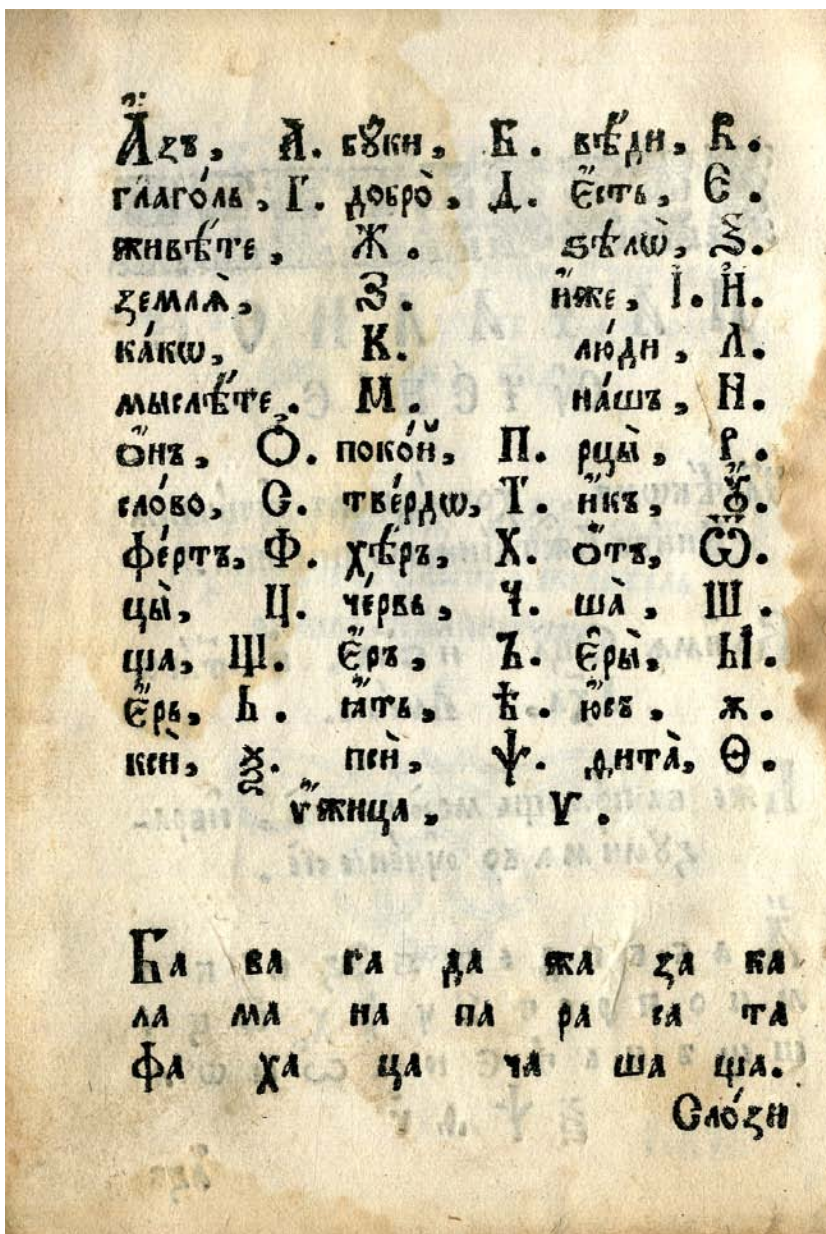 А҆́зъ, А. бꙋ́ки, Б. вѣ́ди, В.
глаго́ль, Г. добро̀, Д. Є҆́сть, Є.
живѣ́те, Ж. ѕѣлѡ̀, Ѕ.
ꙁемлѧ̀, З. и҆́же, І. И.
ка́кѡ, К. лю́ди, Л.
мыслѣ́те. М. на́шъ, Н.
ѻ҆́нъ, Ѻ. поко́й, П. рцы̀, Р.
сло́во, С. тве́рдѡ, Т. и҆́къ, Ꙋ҆́.
фе́ртъ, Ф. хѣ́ръ, Х. ѻ҆́тъ, Ѿ.
цы̀, Ц. че́рвь, Ч. ша̀, Ш.
ща, Щ. Є҆́ръ, Ъ. Є҆ры̀, Ы.
Є҆́рь, Ь. ꙗ҆́ть, Ѣ. ю҆́съ, ѫ.
ксѝ, Ѯ. псѝ, Ѱ. ѳита̀, Ѳ.
ѵ҆́жица, Ѵ.
Ба ва га да жа ꙁа ка
ла ма на па ра са та
фа ха ца ча ша ща.
Сло́ꙁи